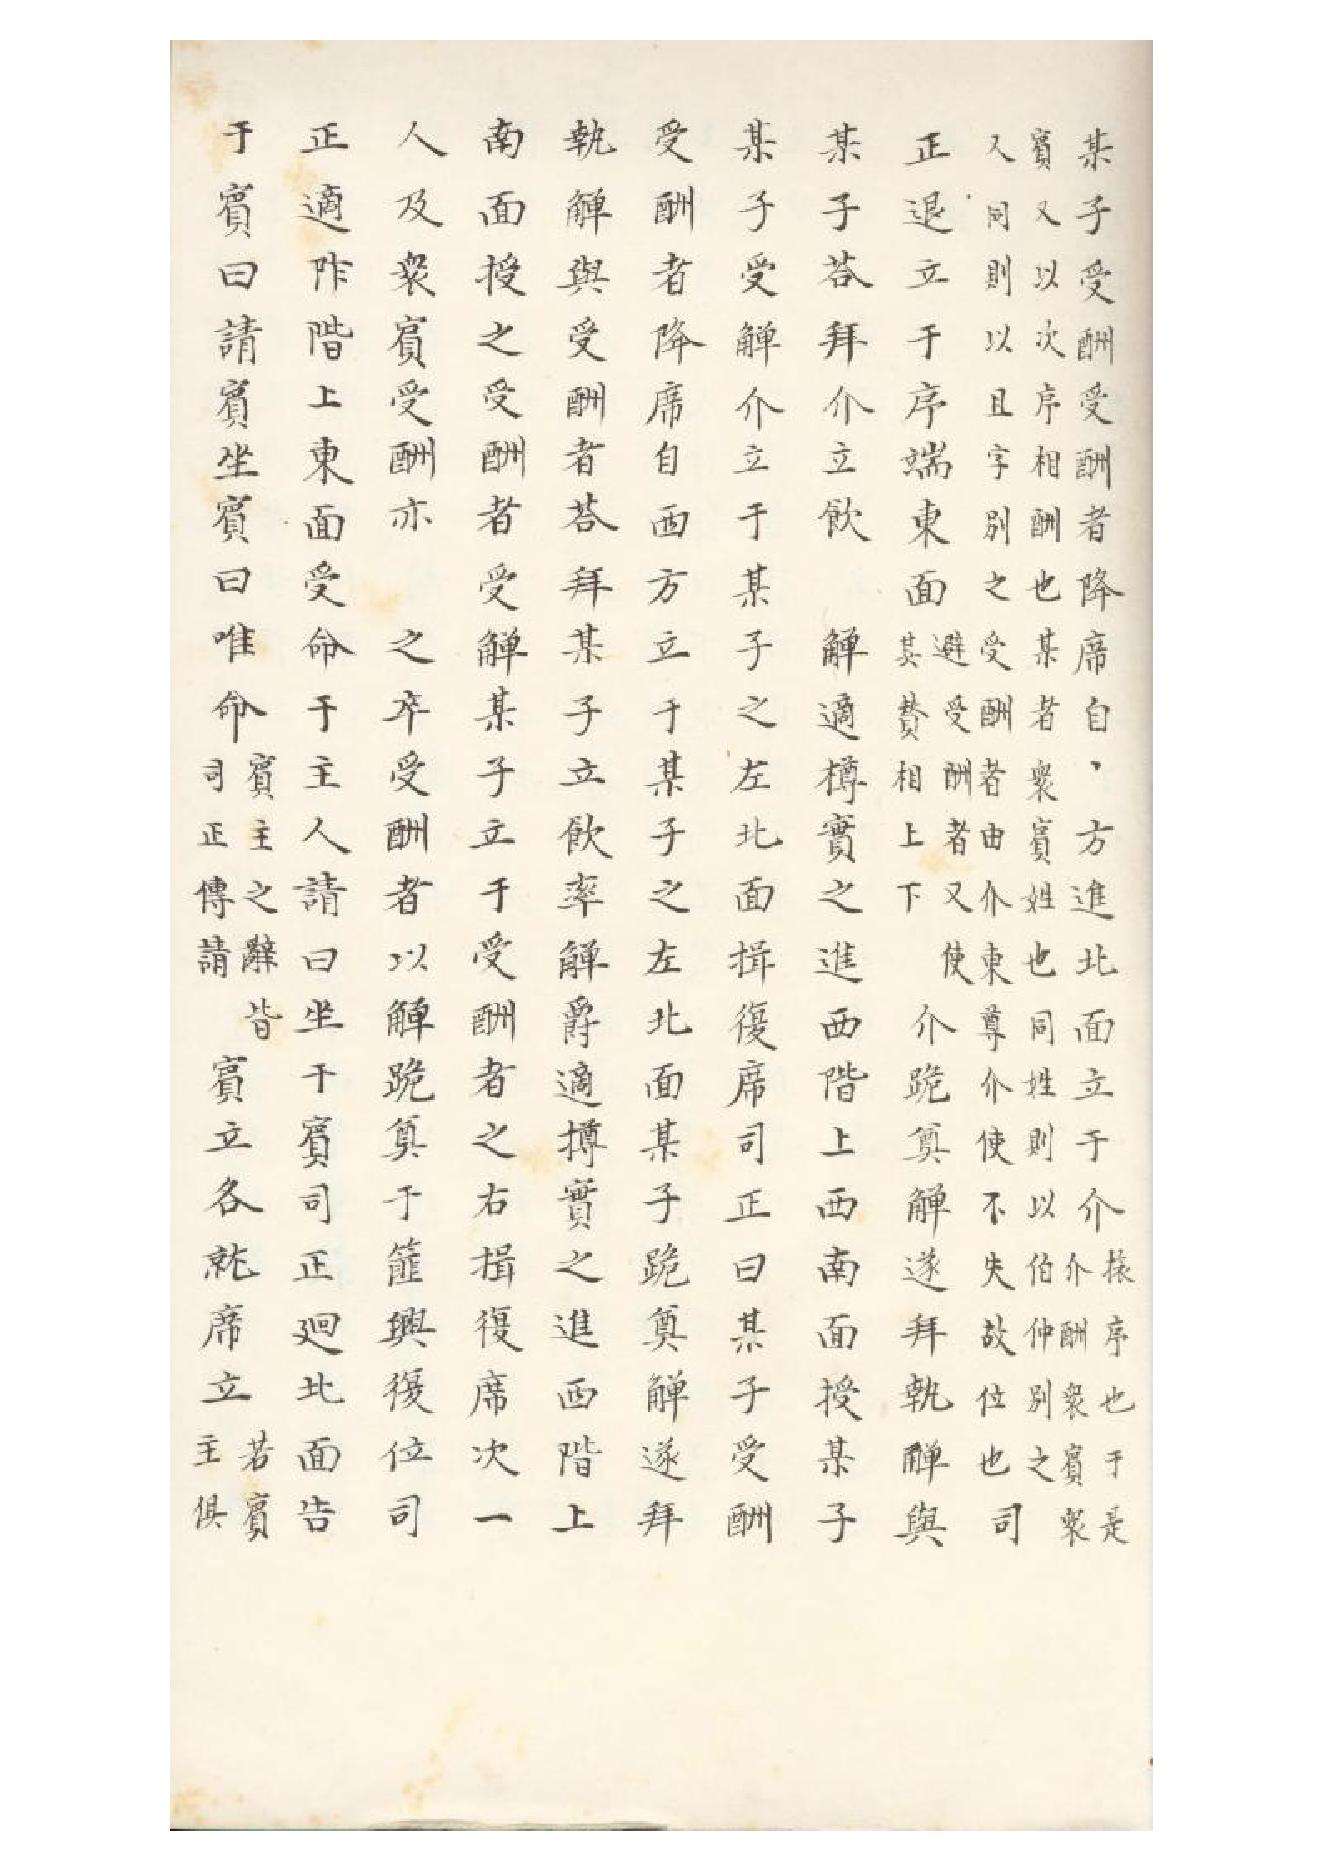 某子受酬受酬者降席自、方進北面立于介掾序也于是介酬衆賓衆
賓又以次序相酬也某者衆賓姓也同姓則以伯仲別之
又同則以且字別之受酬者由介東尊介使不失故位也司
正退立于序端東面避受酬者又使其賛相上下介跪奠觶遂拜執觶與
某子荅拜介立飲 觶適樽實之進西階上西南面授某子
某子受觶介立于某子之左北面揖復席司正曰某子受酬
受酬者降席自西方立于某子之左北面某子跪奠觶遂拜
執觶與受酬者荅拜某子立飲率觶爵適撙實之進西階上
南面授之受酬者受觶某子立于受酬者之右揖復席次一
人及衆賓受酬亦 之卒受酬者以觶跪奠于篚興復位司
正適阼階上東面受命于主人請曰坐于賓司正廻北面告
于賓曰請賓坐賓曰唯命賓主之辭皆司正傳請賓立各就席立若賓主俱